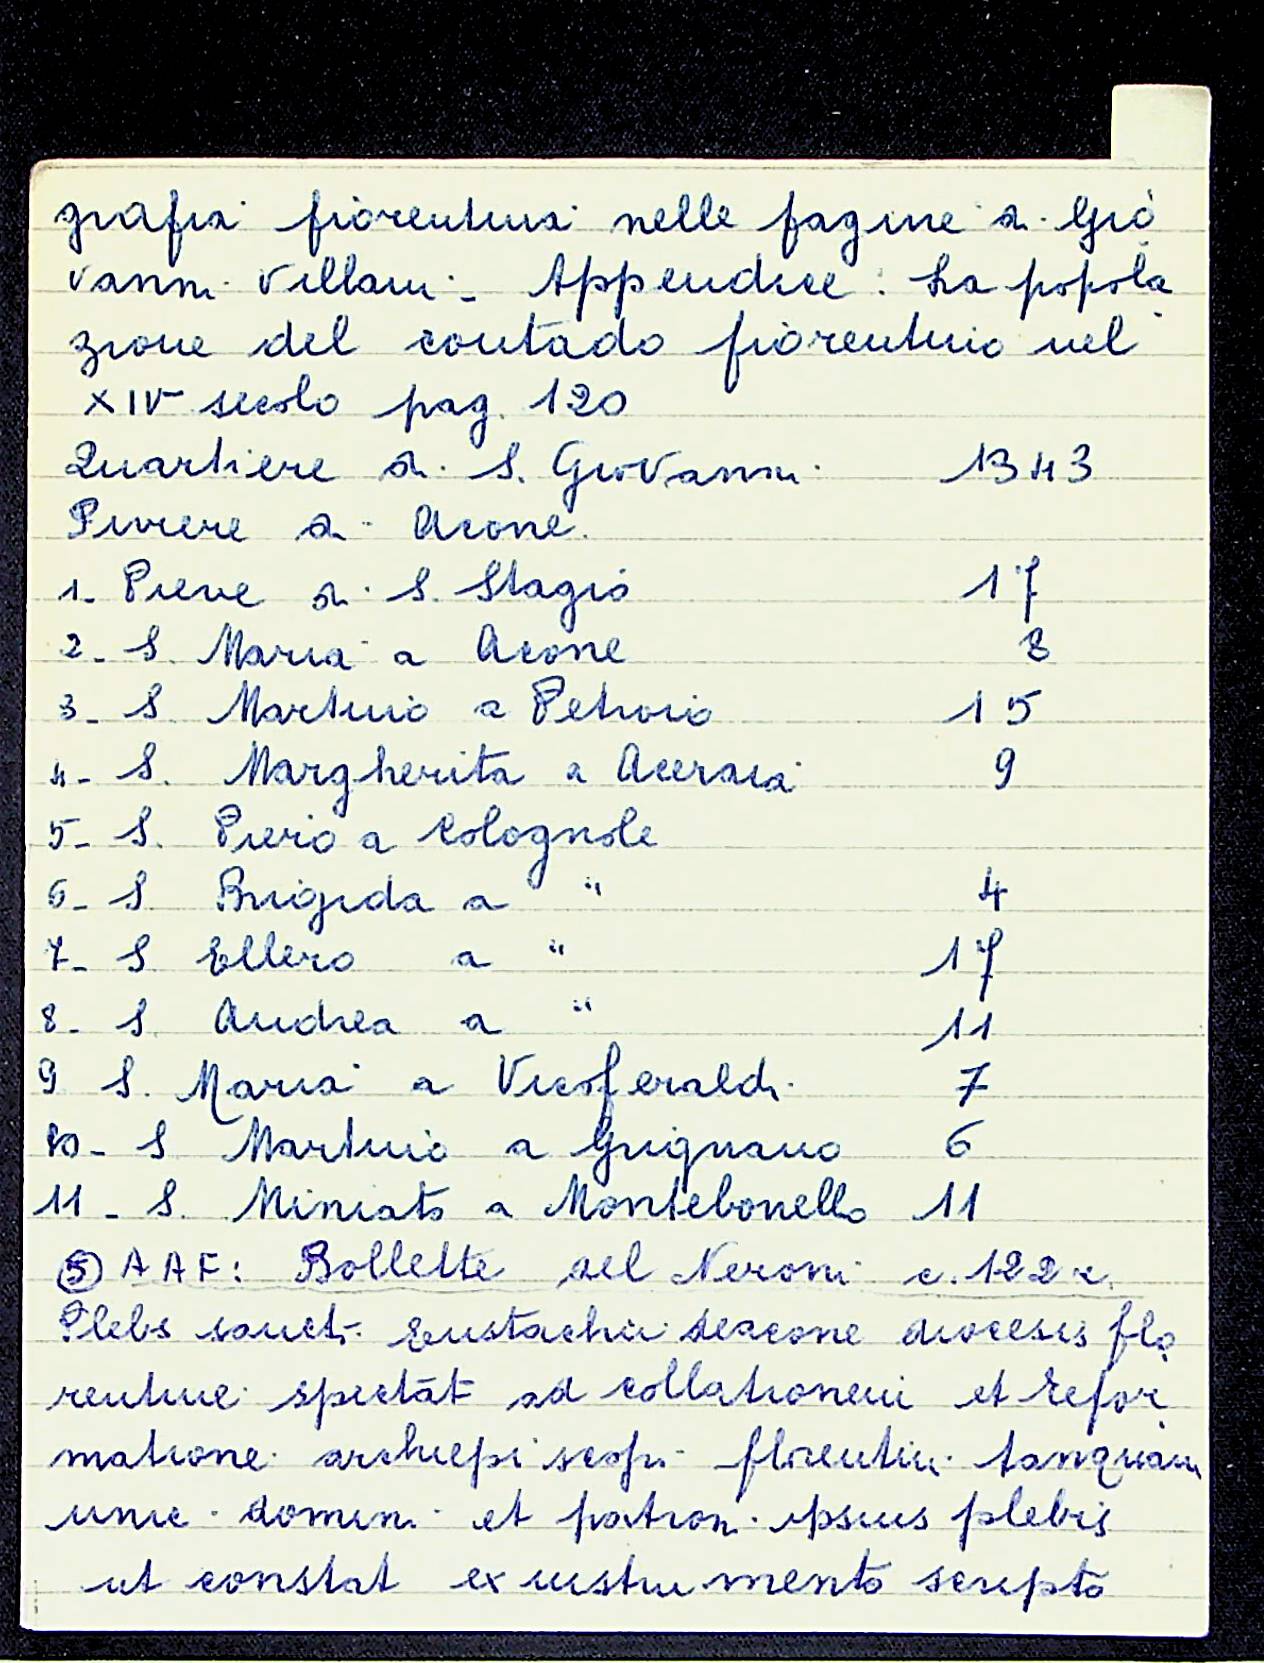 grafia fiorentina nelle pagine di Gio
vanni Villani - Appendice : La popola
zione del contado fiorentino nel
XIV secolo pag. 120
Quartiere di S. Giovanni 1343
Piviere di Acone.
1- Pieve di S. Stagio 17
2- S. Maria a Acone 8
3- S. Martino a Petroio 15
4- S. Margherita a Aceraia 9
5- S. Piero a Colognole
6- S. Brigida a " 4
7- S. Ellero a " 17
8- S. Andrea a " 11
9 S. Maria a Vicoferaldi 7
10- S. Martino a Grignano 6
11- S. Miniato a Montebonello 11
⑤ AAF: Bollette del Neroni c. 122 r.
Plebs sancti Eustachii deacone diocesis flo
rentine spectāt ad collationem et refor
matione archiepiscopi florentin tanquam
unic domini et patroni ipsius plebis
ut constat ex instrumento scripto